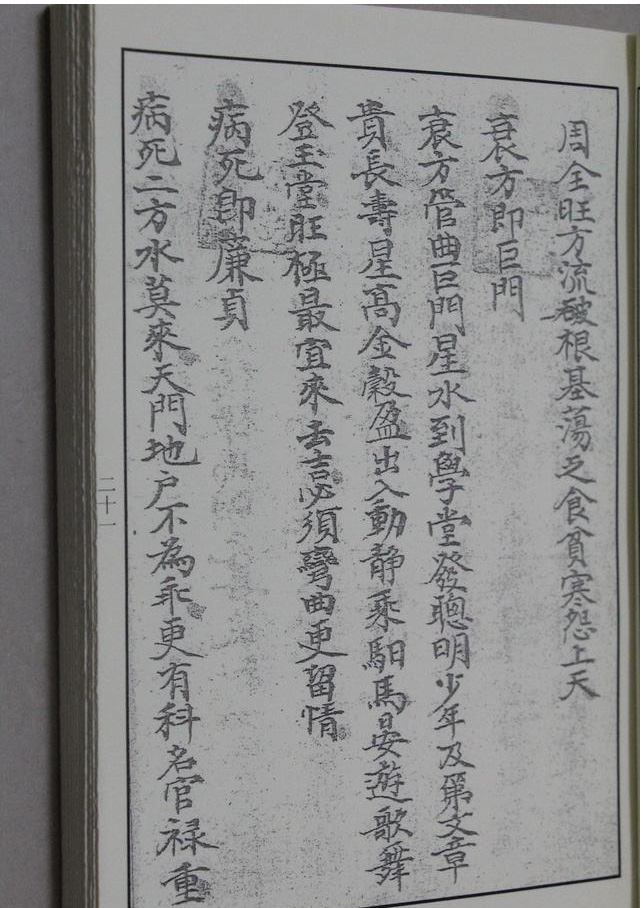 周全旺方流破根基蕩乏食貧寒怨上天
衰方即巨門
衰方管曲巨門星水到學堂發聰明少年及第文章
貴長壽星高金穀盈出入動静乘駟馬晏遊歌舞
登玉堂旺極最宜來去吉必須彎曲更留情
病死即廉貞
病死二方水莫來天門地户不為乖更有科名官禄重
二十一